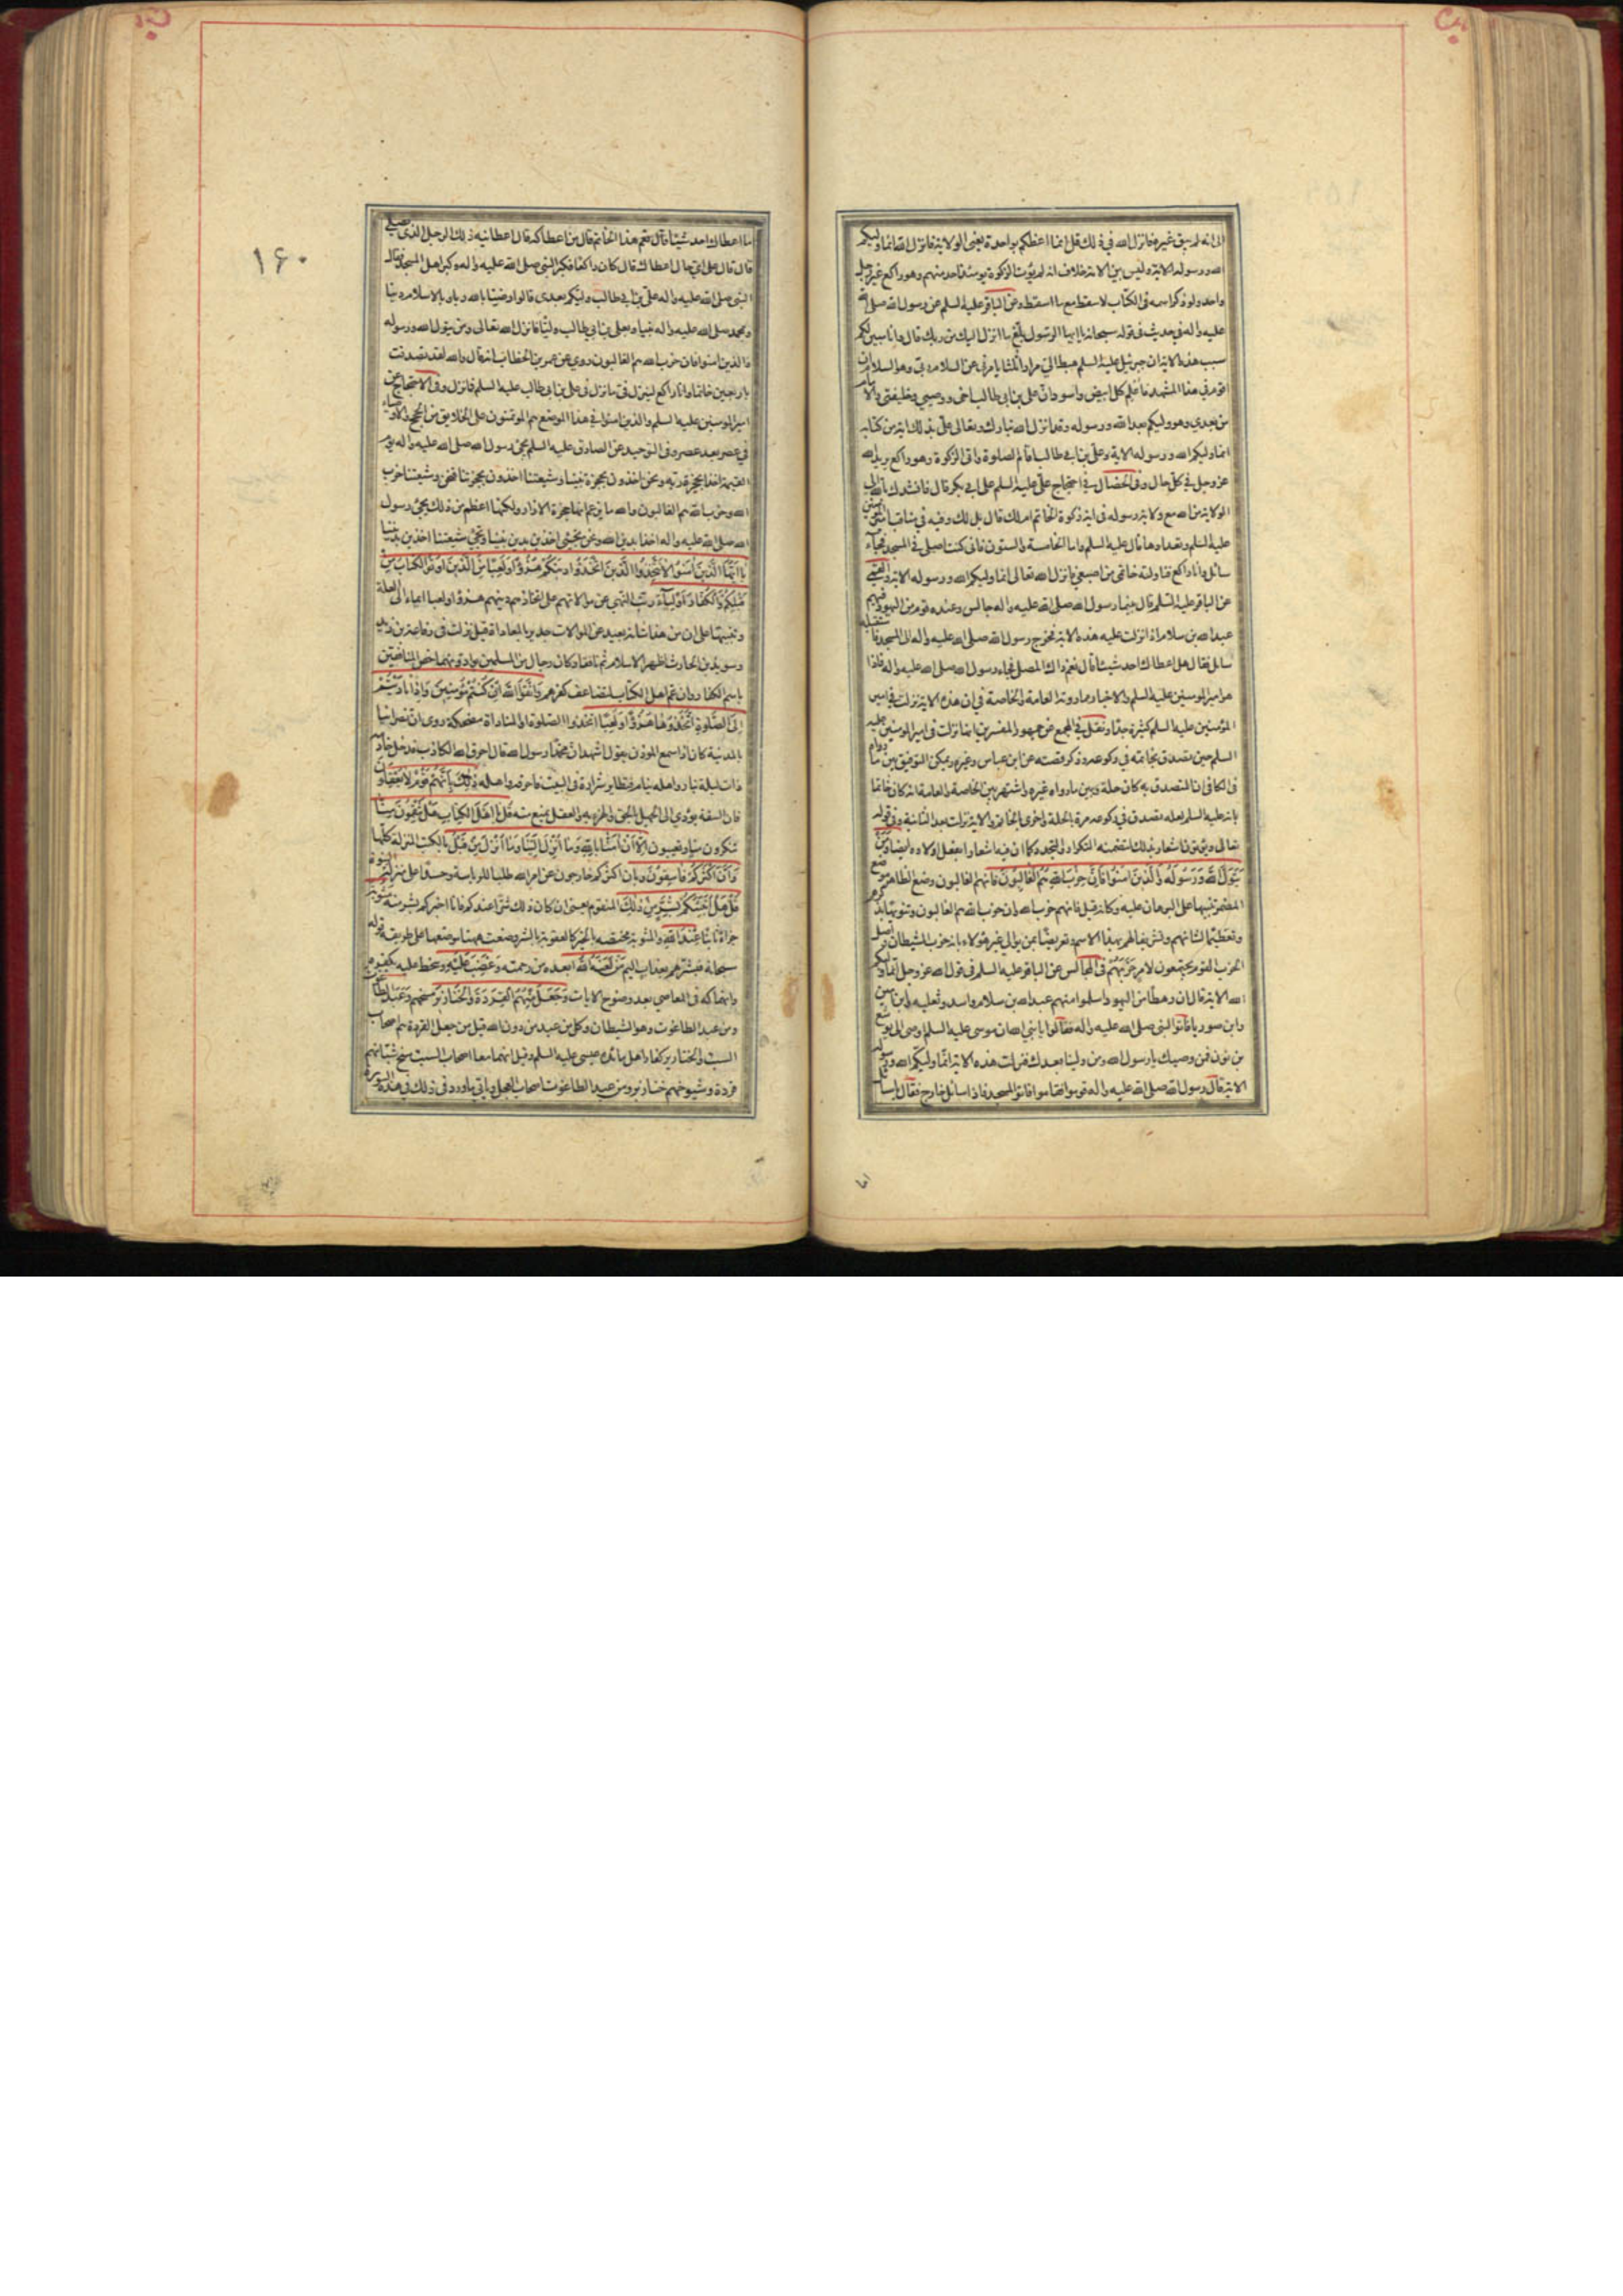 الى انه لم يبق غيره فانزل الله في ذلك قل انما اعظكم بواحدة يعنى الولاية فانزل الله انما وليكم
الله ورسوله الاية وليس بين الامة خلاف انه لم يؤت الزكوة يومئذ احد منهم وهو راكع غير رجل
واحد ولو ذكر اسمه فى الكتاب لاسقط مع ما اسقط وعن الباقر عليه السلم عن رسول الله صلى الله
عليه واله في حديث في قوله سبحانه يا ايها الرسول بلغ ما انزل اليك من ربك قال وانا مبين لكم
سبب هذه الاية ان جبرئيل عليه السلم هبط الى مرارا ثلثا يامرنى عن السلام ربى وهو السلام ان
اقوم في هذا المشهد فاعلم كل ابيض واسود ان على بن ابى طالب اخى ووصيى وخليفتى والامام
من بعدي وهو وليكم بعد الله ورسوله وقد انزل الله تبارك وتعالى على بذلك اية من كتابه
انما وليكم الله ورسوله الاية وعلى بن ابى طالب اقام الصلوة واتى الزكوة وهو راكع يريد الله
عز وجل في كل حال وفى الخصال في احتجاج على عليه السلم على ابى بكر قال فانشدك بالله الى
الولاية من الله مع ولاية رسوله فى اية زكوة الخاتم ام لك قال بل لك وفيه في مناقب امير المؤمنين
عليه السلم وتعدادها قال عليه السلم واما الخامسة والستون فانى كنت اصلى في المسجد فجاء
سائل وانا راكع فناولته خاتمى من اصبعى فانزل الله تعالى انما وليكم الله ورسوله الاية والقمى
عن الباقر عليه السلم قال بينما رسول الله صلى الله عليه واله جالس وعنده قوم من اليهود فيهم
عبد الله بن سلام اذ انزلت عليه هذه الاية فخرج رسول الله صلى الله عليه واله الى المسجد فاستقبله
سائل فقال هل اعطاك احد شيئا قال نعم ذاك المصلى فجاء رسول الله صلى الله عليه واله فاذا
هو امير المؤمنين عليه السلم والاخبار مما روته العامة والخاصة في ان هذه الاية نزلت في امير
المؤمنين عليه السلم كثيرة جدا ونقل في المجمع عن جمهور المفسرين انها نزلت فى امير المؤمنين عليه
السلم حين تصدق بخاتمه في ركوعه وذكر قصته عن ابن عباس وغيره ويمكن التوفيق بين ما رواه
فى الكافى ان المتصدق به كان حلة وبين ما رواه غيره واشتهر بين الخاصة والعامة انه كان خاتما
بانه عليه السلم لعله تصدق في ركوعه مرة بالحلة واخرى بالخاتم والاية نزلت بعد الثانية وفى قوله
تعالى ويؤتون اشعار بذلك لتضمنه التكرار والتجدد كما ان فيه اشعارا بفعل اولاده ايضا ومن
يتول الله ورسوله والذين امنوا فان حزب الله هم الغالبون فانهم الغالبون وضع الظاهر موضع
المضمر تنبيها على البرهان عليه وكانه قيل فانهم حزب الله وان حزب الله هم الغالبون وتنويها بذكرهم
وتعظيما لشانهم وتشريفا لهم بهذا الاسم وتعريضا بمن يوالى غير هؤلاء بانه حزب الشيطان واصل
الحزب القوم يجتمعون لامر حزبهم فى المجالس عن الباقر عليه السلم فى قول الله عز وجل انما وليكم
الله الاية قال ان رهطا من اليهود اسلموا منهم عبد الله بن سلام واسد وثعلبة وابن يامين
وابن صوريا فاتوا النبى صلى الله عليه واله فقالوا يا نبى الله ان موسى عليه السلم اوصى الى يوشع
بن نون فمن وصيك يا رسول الله ومن ولينا بعدك فنزلت هذه الاية انما وليكم الله ورسوله
الاية قال رسول الله صلى الله عليه واله قوموا فقاموا فاتوا المسجد فاذا سائل خارج فقال يا سائل
١۶٠
ما اعطاك احد شيئا قال نعم هذا الخاتم قال من اعطاكه قال اعطانيه ذلك الرجل الذى يصلى
قال قال على اى حال اعطاك قال كان راكعا فكبر النبى صلى الله عليه واله وكبر اهل المسجد فقال
النبى صلى الله عليه واله على بن ابى طالب وليكم بعدى قالوا رضينا بالله ربا وبالاسلام دينا
وبمحمد صلى الله عليه واله نبيا وبعلى بن ابى طالب وليا فانزل الله تعالى ومن يتول الله ورسوله
والذين امنوا فان حزب الله هم الغالبون وروى عن عمر بن الخطاب انه قال والله لقد تصدقت
باربعين خاتما وانا راكع لينزل فى ما نزل فى على بن ابى طالب عليه السلم فما نزل وفى الاحتجاج عن
امير المؤمنين عليه السلم والذين امنوا في هذا الموضع هم المؤتمنون على الخلايق من الحجج والاوصياء
في عصر بعد عصر وفى التوحيد عن الصادق عليه السلم يجئ رسول الله صلى الله عليه واله يوم
القيمة اخذا بحجزة ربه ونحن اخذون بحجزة نبينا وشيعتنا اخذون بحجزتنا فنحن وشيعتنا حزب
الله وحزب الله هم الغالبون والله ما يزعم انها حجزة الازار ولكنها اعظم من ذلك يجئ رسول
الله صلى الله عليه واله اخذا بدين الله ونحن نجئ اخذين بدين نبينا وتجئ شيعتنا اخذين بديننا
يا ايها الذين امنوا لا تتخذوا الذين اتخذوا دينكم هزوا ولعبا من الذين اوتوا الكتاب من
قبلكم والكفار اولياء رتب النهى عن موالاتهم على اتخاذهم دينهم هزوا ولعبا ايماء الى العلة
وتنبيها على ان من هذا شانه بعيد عن الموالات جدير بالمعاداة قيل نزلت فى رفاعة بن زيد
وسويد بن الحارث اظهرا الاسلام ثم نافقا وكان رجال من المسلمين يوادونهما خص المنافقين
باسم الكفار وان عم اهل الكتاب لتضاعف كفرهم واتقوا الله ان كنتم مؤمنين واذا ناديتم
الى الصلوة اتخذوها هزوا ولعبا اتخذوا الصلوة او المناداة مضحكة روى ان نصرانيا
بالمدينة كان اذا سمع المؤذن يقول اشهد ان محمدا رسول الله قال احرق الله الكاذب فدخل خادمه
ذات ليلة بنار واهله نيام فتطاير شرارة فى البيت فاحرقه واهله ذلك بانهم قوم لا يعقلون
فان السفه يؤدي الى الجهل بالحق والهزء به والعقل يمنع منه قل يا اهل الكتاب هل تنقمون منا
تنكرون منا وتعيبون الا ان امنا بالله وما انزل الينا وما انزل من قبل بالكتب المنزلة كلها
وان اكثركم فاسقون وبان اكثركم خارجون عن امر الله طلبا للرياسة وحسدا على منزلة النبوة
قل هل انبئكم بشر من ذلك المنقوم يعنى ان كان ذلك شرا عندكم فانا اخبركم بشر منه مثوبة
جزاء ثابتا عند الله والمثوبة مختصة بالخير كالعقوبة بالشر وضعت ههنا موضعها على طريقة قوله
سبحانه فبشرهم بعذاب اليم من لعنه الله ابعده من رحمته وغضب عليه وسخط عليه بكفره
وانهماكه فى المعاصى بعد وضوح الايات وجعل منهم القردة والخنازير مسخهم وعبد الطاغوت
ومن عبد الطاغوت وهو الشيطان وكل من عبد من دون الله قيل من جعل القردة هم اصحاب
السبت والخنازير كفار اهل مائدة عيسى عليه السلم وقيل انهما معا اصحاب السبت مسخ شبانهم
قردة وشيوخهم خنازير ومن عبد الطاغوت اصحاب العجل وياتى ما ورد فى ذلك في هذه السورة